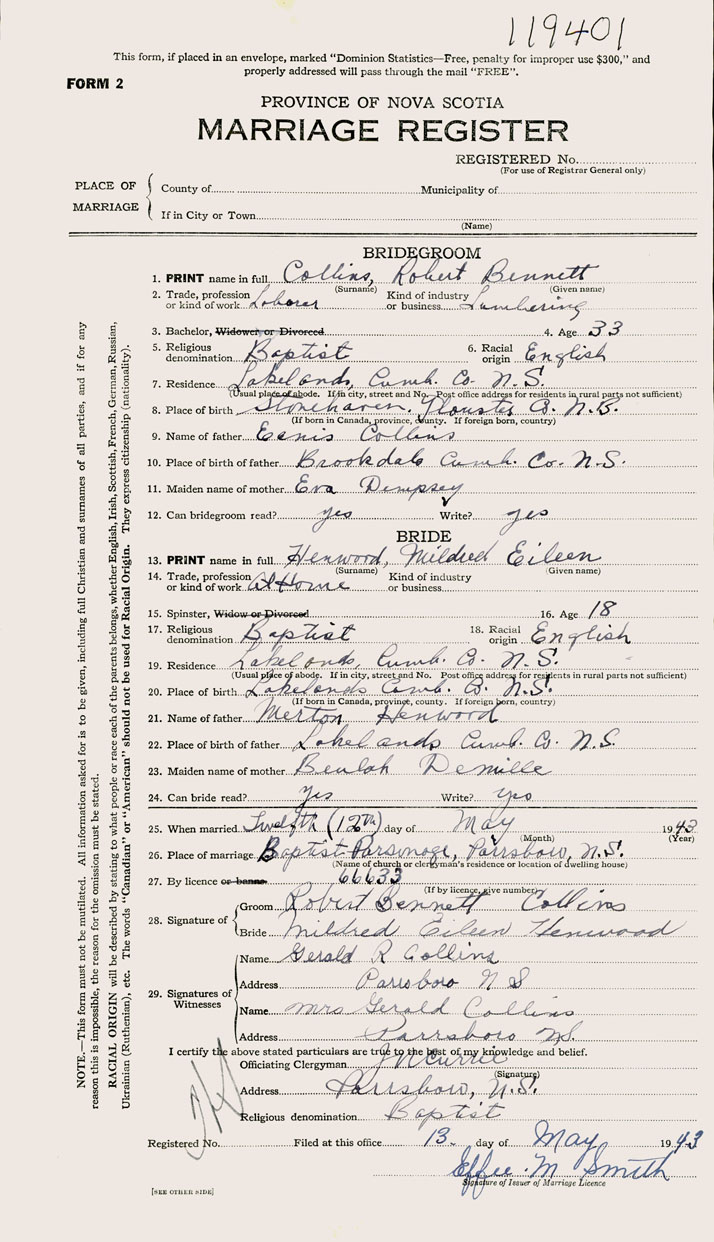 119401
This form, if placed in an envelope, marked "Dominion Statistics—Free, penalty for improper use $300," and
properly addressed will pass through the mail "FREE".
FORM 2
PROVINCE OF NOVA SCOTIA
MARRIAGE REGISTER
REGISTERED No.
(For use of Registrar General only)
PLACE OF MARRIAGE
County of
Municipality of
If in City or Town
(Name)
BRIDEGROOM
1. PRINT name in full Collins, Robert Bennett
(Surname) (Given name)
2. Trade, profession or kind of work Laborer Kind of industry or business Lumbering
3. Bachelor, Widower, or Divorced 4. Age 33
5. Religious denomination Baptist 6. Racial origin English
7. Residence Lakelands, Cumb. Co. N.S.
(Usual place of abode. If in city, street and No. Post office address for residents in rural parts not sufficient)
8. Place of birth Stonehaven, Glouster Co. N.B.
(If born in Canada, province, county. If foreign born, country)
9. Name of father Collins
10. Place of birth of father Brookdale Cumb. Co. N.S.
11. Maiden name of mother Eva Dempsey
12. Can bridegroom read? yes Write? yes
BRIDE
13. PRINT name in full Henwood, Mildred Eileen
(Surname) (Given name)
14. Trade, profession or kind of work At Home Kind of industry or business
15. Spinster, Widow or Divorced 16. Age 18
17. Religious denomination Baptist 18. Racial origin English
19. Residence Lakelands, Cumb. Co. N.S.
(Usual place of abode. If in city, street and No. Post office address for residents in rural parts not sufficient)
20. Place of birth Lakelands Cumb. Co. N.S.
(If born in Canada, province, county. If foreign born, country)
21. Name of father Merton Henwood
22. Place of birth of father Lakelands Cumb. Co. N.S.
23. Maiden name of mother Beulah Demille
24. Can bride read? Yes Write? Yes
25. When married Twelfth (12th) day of May 1943
(Month) (Year)
26. Place of marriage Baptist Parsonage, Parrsboro, N.S.
(Name of church or clergyman's residence or location of dwelling house)
27. By licence or banns 66633
(If by licence, give number)
28. Signature of
Groom Robert Bennett Collins
Bride Mildred Eileen Henwood
29. Signatures of Witnesses
Name Gerald R Collins
Address Parrsboro N S
Name Mrs Gerald Collins
Address Parrsboro N.S.
I certify the above stated particulars are true to the best of my knowledge and belief.
Officiating Clergyman Currie
(Signature)
Address Parrsboro, N.S.
Religious denomination Baptist
Registered No. Filed at this office 13 day of May 1943
Effie M Smith
Signature of Issuer of Marriage Licence
[SEE OTHER SIDE]
NOTE.—This form must not be mutilated. All information asked for is to be given, including full Christian and surnames of all parties, and if for any
reason this is impossible, the reason for the omission must be stated.
RACIAL ORIGIN will be described by stating to what people or race each of the parents belongs, whether English, Irish, Scottish, French, German, Russian,
Ukrainian (Ruthenian), etc. The words "Canadian" or "American" should not be used for Racial Origin. They express citizenship (nationality).